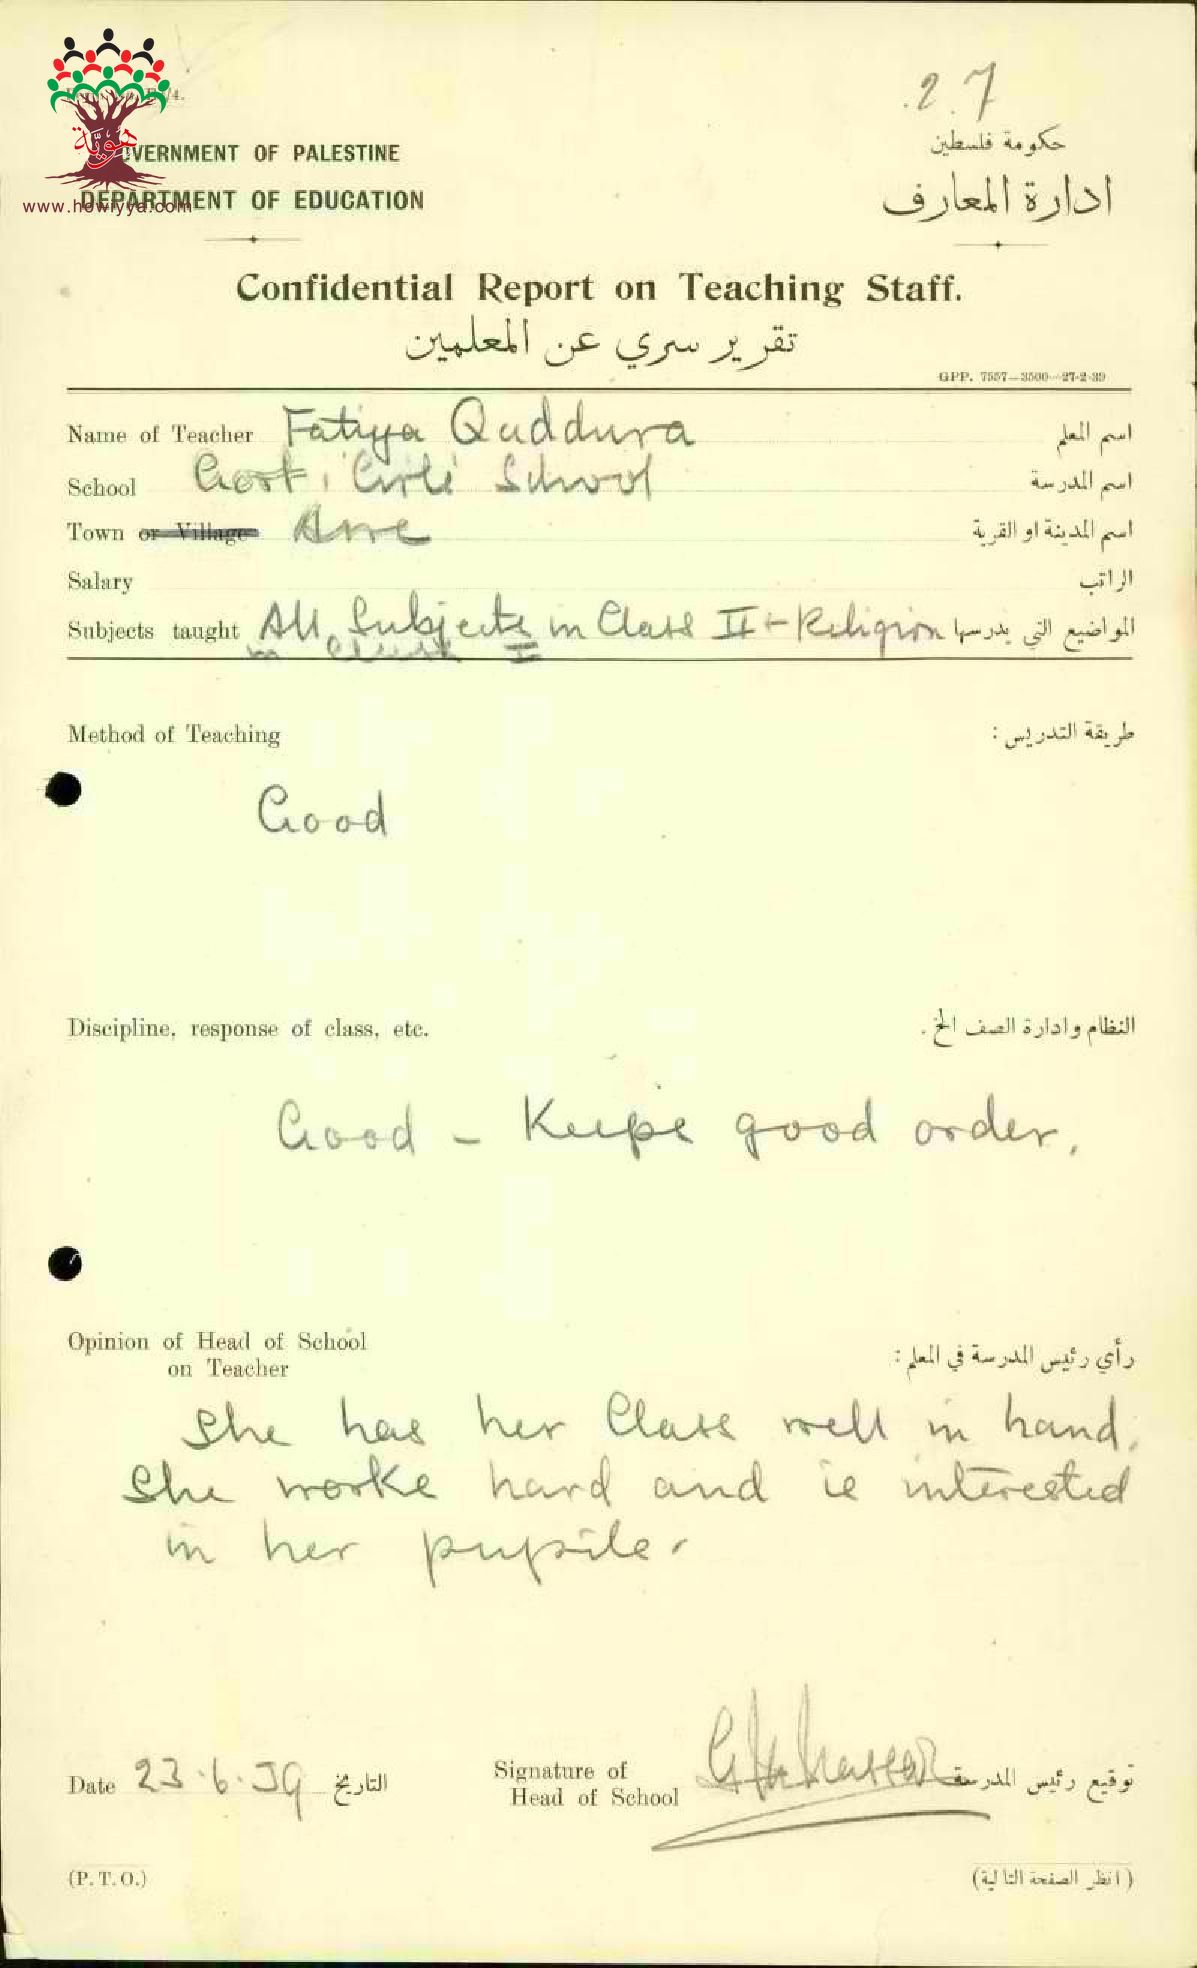 27
حكومة فلسطين
GOVERNMENT OF PALESTINE
هوية
ادارة المعارف
DEPARTMENT OF EDUCATION
www.howiyya.com
Confidential Report on Teaching Staff.
تقرير سري عن المعلمين
GPP. 7557—3500—27-2-39
Name of Teacher Fatiya Quddura اسم المعلم
School Govt. Girls' School اسم المدرسة
Town or Village Acre اسم المدينة او القرية
Salary الراتب
Subjects taught All Subjects in Class II + Religion المواضيع التي يدرسها
in Class I
Method of Teaching طريقة التدريس :
Good
Discipline, response of class, etc. النظام وادارة الصف الخ .
Good – Keeps good order.
Opinion of Head of School رأي رئيس المدرسة في المعلم :
on Teacher
She has her Class well in hand.
She works hard and is interested
in her pupils.
Date 23.6.39 التاريخ
Signature of توقيع رئيس المدرسة
Head of School
(P. T. O.) (انظر الصفحة التالية)